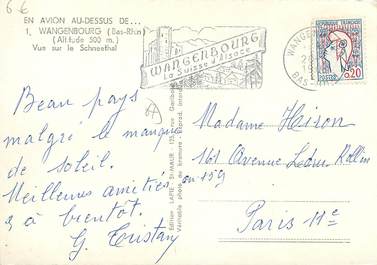 6 €
EN AVION AU-DESSUS DE...
1. WANGENBOURG (Bas-Rhin)
(Altitude 500 m.)
Vue sur le Schneethal
WANGENBOURG
La Suisse d'Alsace
WANGE
BAS-
REPUBLIQUE FRANCAISE
0,20
Beau pays
malgré le manque
de soleil.
Meilleures amitiés
et à bientôt.
G. Tristan
Edition LAPIE, St-MAUR
Véritable photo au bromure
Madame Hison
161 Avenue Ledru Rollin
ou 159
Paris 11e